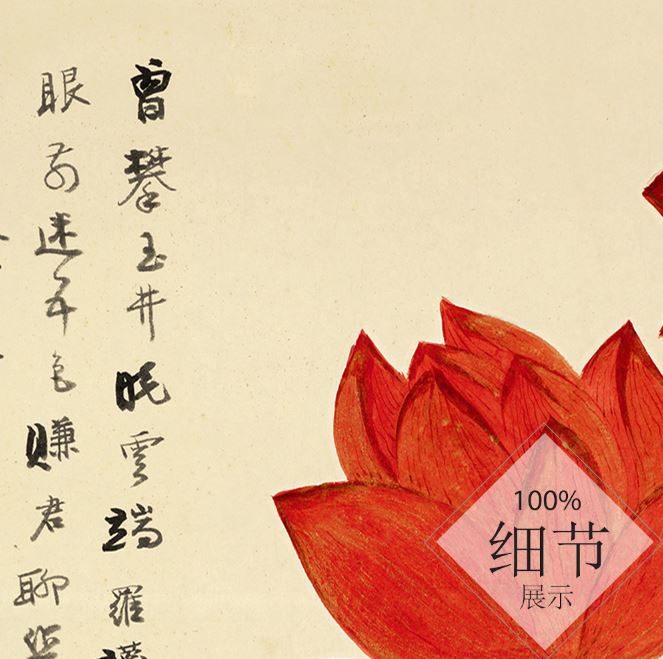 曾攀玉井雲端羅
眼前迷色賺君聊
100%
细节
展示